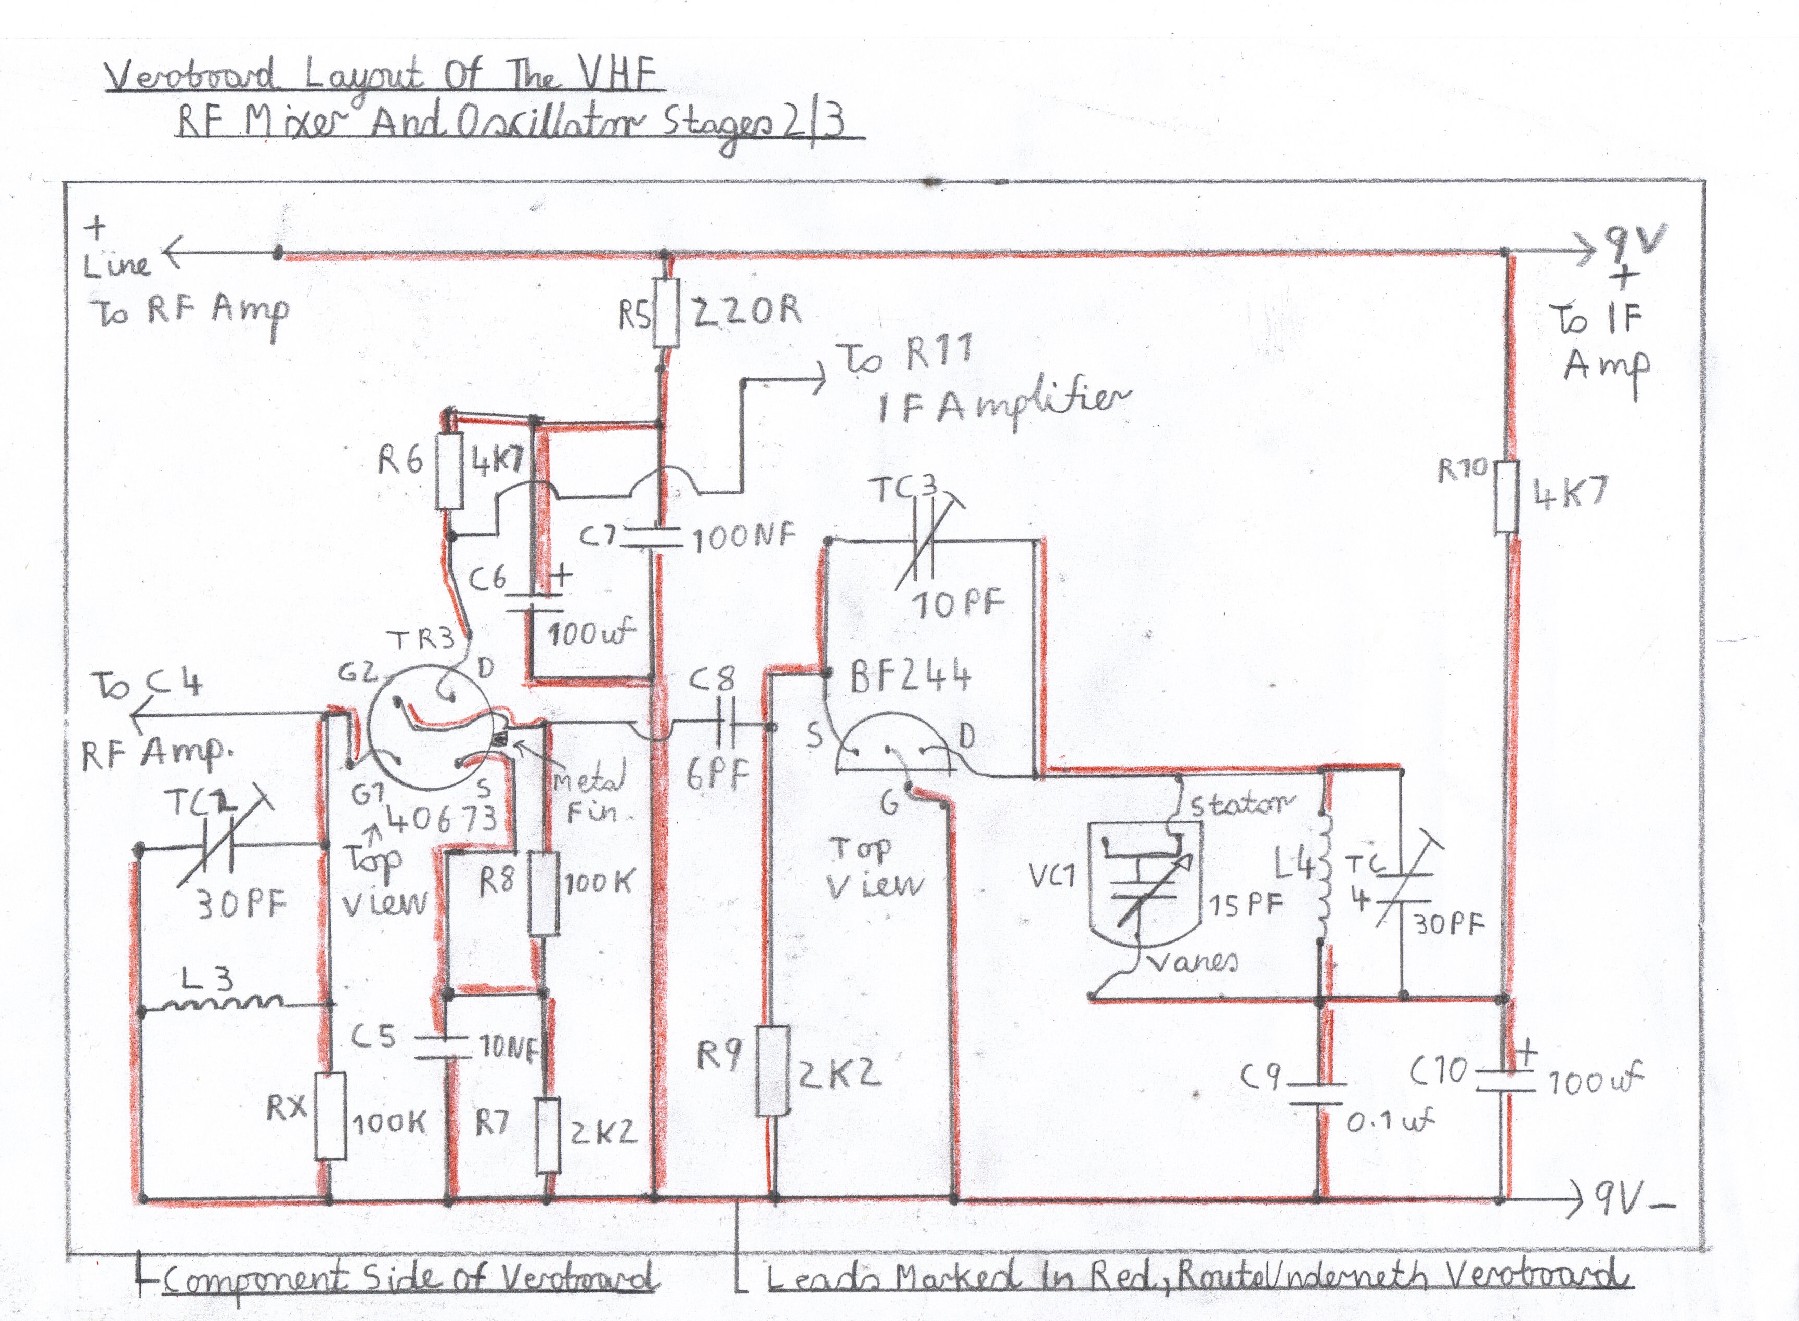 Veroboard Layout Of The VHF
RF Mixer And Oscillator Stages 2/3
+
Line
To RF Amp
9V
+
To IF
Amp
R5
220R
To R11
IF Amplifier
R6
4K7
R10
4K7
TC3
10PF
C7
100NF
C6
+
100uf
TR3
G2
D
To C4
RF Amp.
C8
6PF
BF244
S
D
G
G1
S
Metal
Fin.
TC2
30PF
40673
Top
View
Top
View
Stator
VC1
15PF
Vanes
L4
TC
4
30PF
R8
100K
L3
C5
10NF
R9
2K2
C9
0.1uf
C10
+
100uf
RX
100K
R7
2K2
9V-
Component Side Of Veroboard
Leads Marked In Red, Route Underneth Veroboard